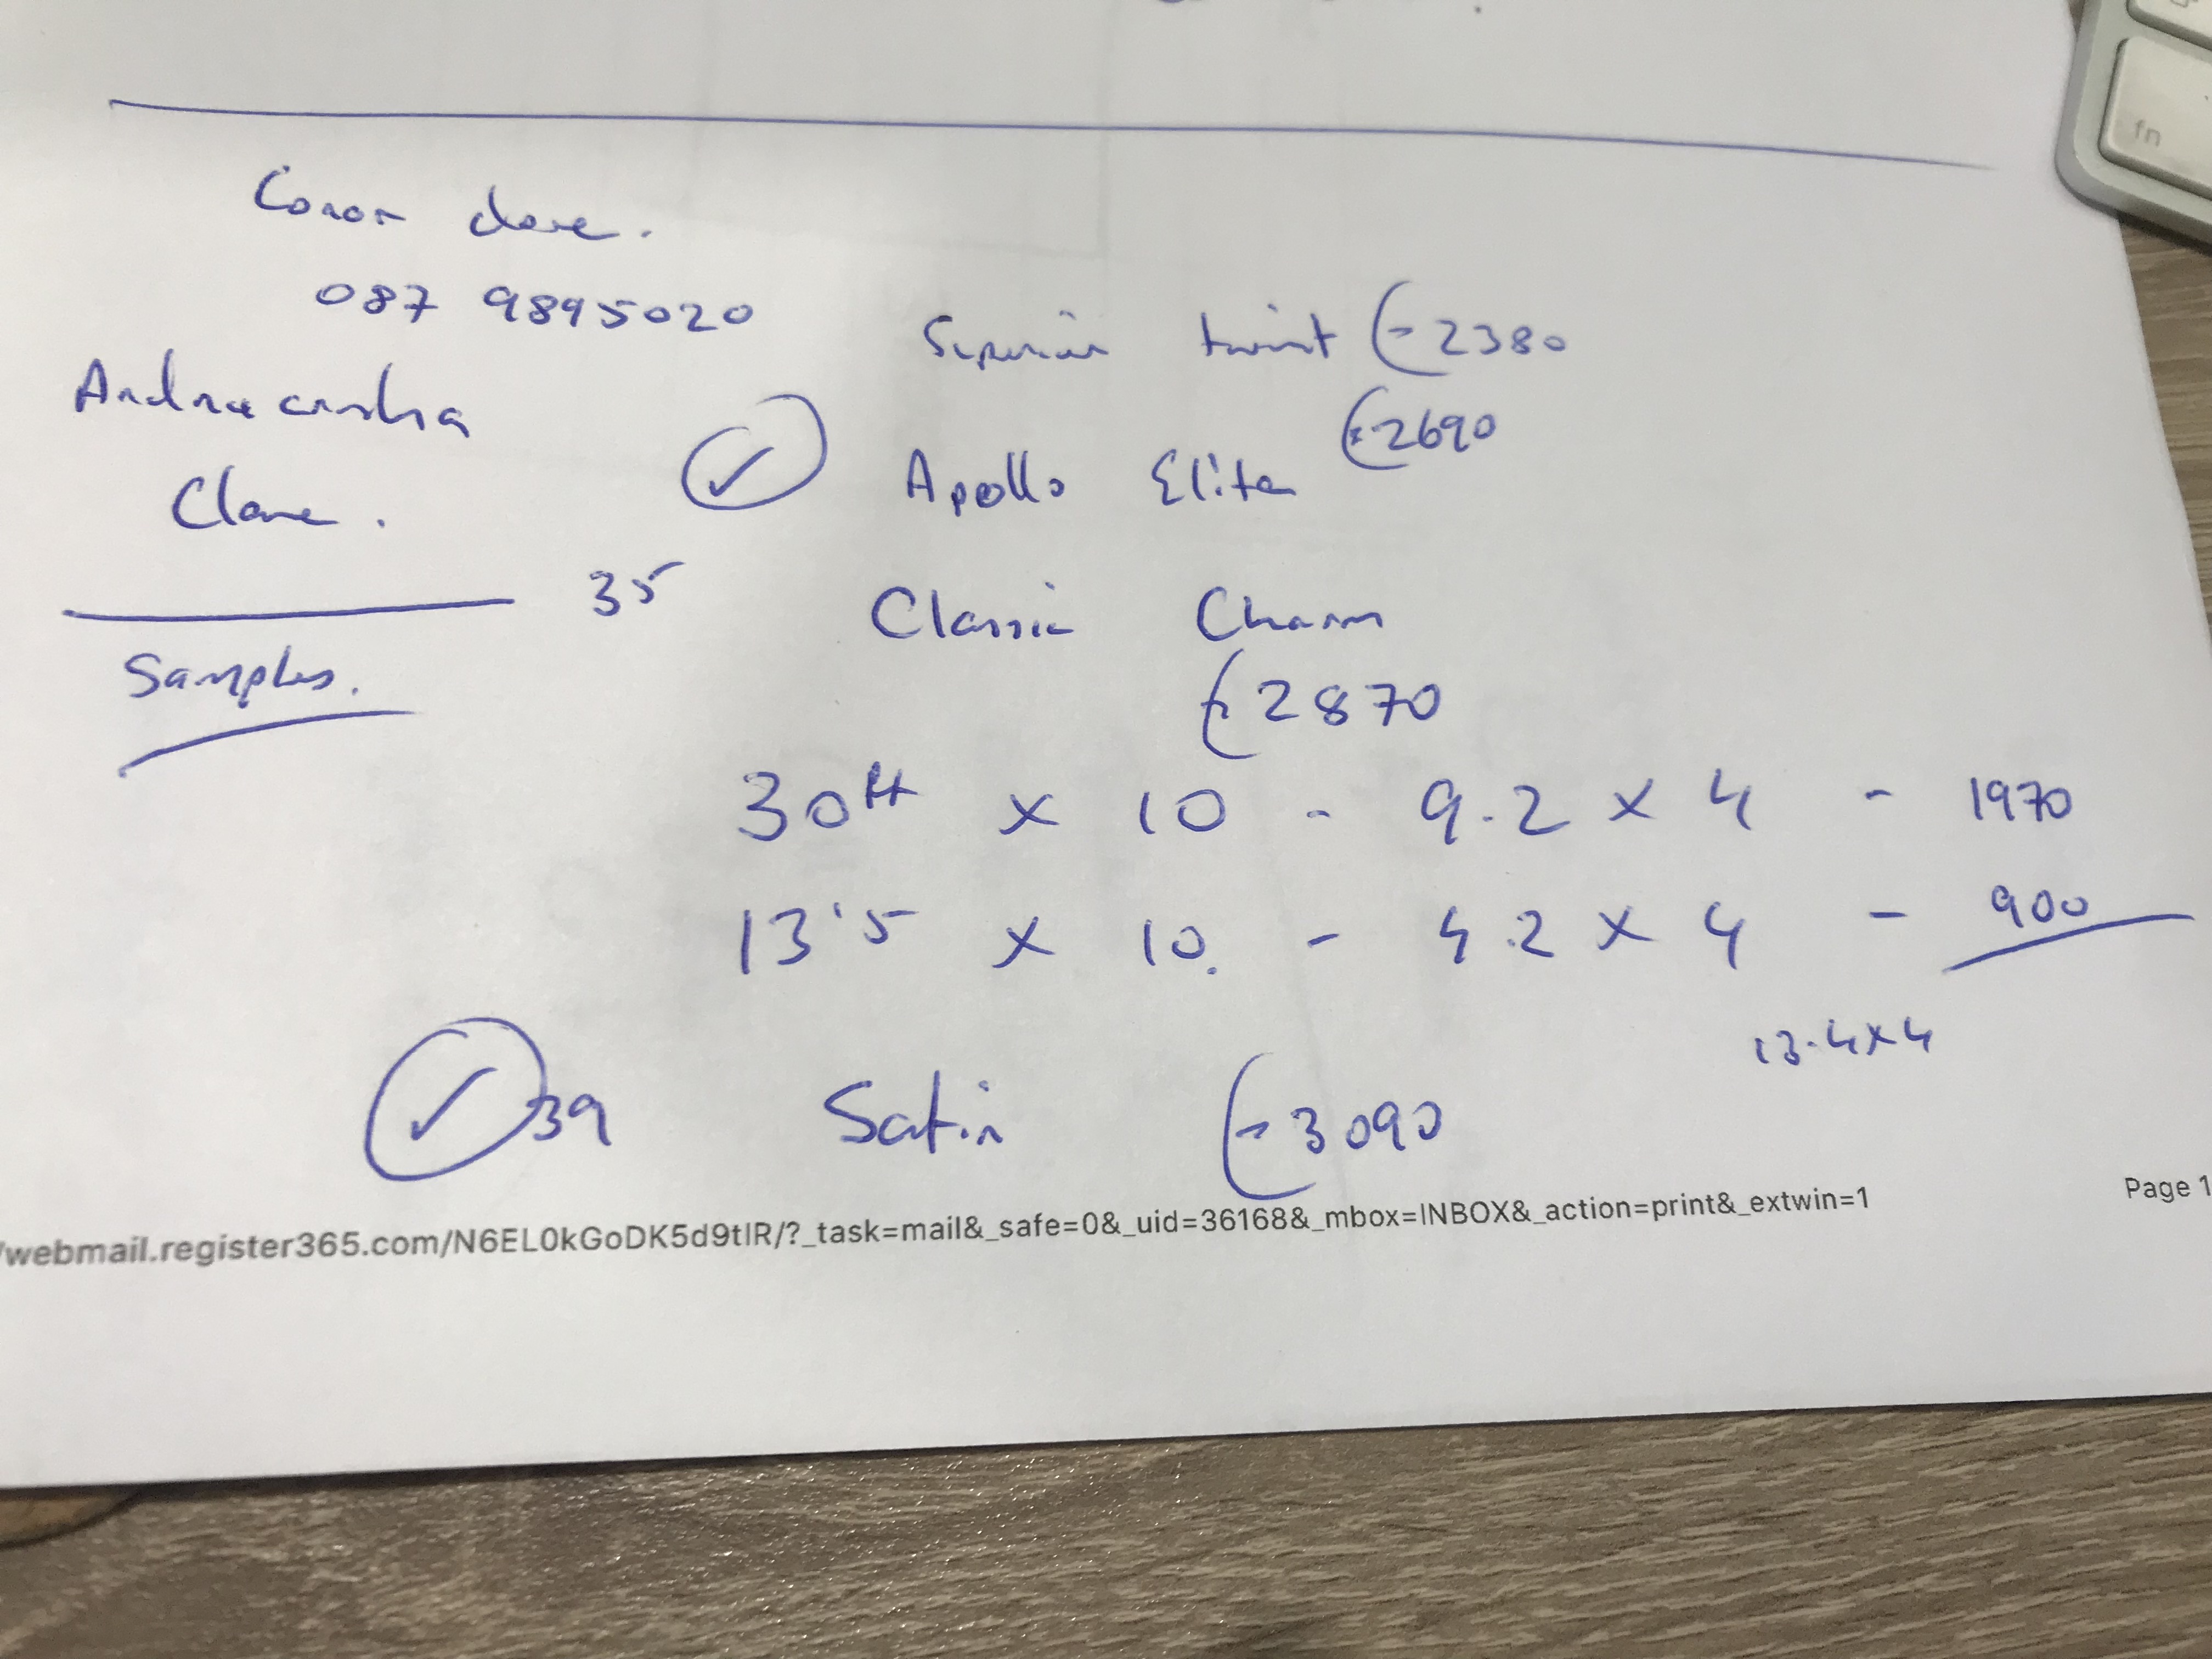 Conor
087 9895020
Clane.
Samples.
Superior twist €2380
Apollo Elite €2690
35 Classic Charm
€2870
30ft x 10 - 9.2 x 4 - 1970
13'5 x 10. - 4.2 x 4 - 900
13.4x4
39 Satin €3090
/webmail.register365.com/N6EL0kGoDK5d9tIR/?_task=mail&_safe=0&_uid=36168&_mbox=INBOX&_action=print&_extwin=1
Page 1
fn